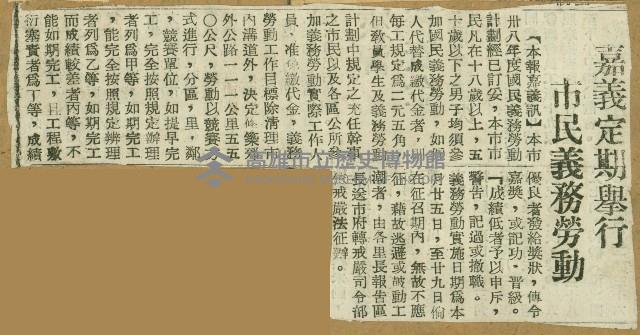 嘉義定期舉行
市民義務勞動
【本報嘉義訊】本市
卅八年度國民義務勞動
計劃經已訂妥，本市市
民凡在十八歲以上，五
十歲以下之男子均須參
加國民義務勞動，如僱
人代替或繳代金者，
每工規定為二元五角，
但教員學生及義務勞動
計劃中規定之充任幹事
之市民以及各區公所
加義務勞動實際工作人
員，准免繳代金，義務
勞動工作目標除清理市
內溝道外，決定修築郊
外公路一一一公里五五
〇公尺，勞動以競賽方
式進行，分區，里，鄰
，競賽單位，如提早完
工，完全按照規定辦理
者列為甲等，如期完工
，能完全按照規定辦理
者列為乙等，如期完工
而成績較差者丙等，不
能如期完工，且工程敷
衍塞責者為丁等，成績
優良者發給獎狀，傳令
嘉獎，或記功，晉級。
「成績低者予以申斥，
警告，記過或撤職。
義務勞動實施日期為本
月廿五日，至廿九日
在征召期內，無故不應
征，藉故逃避或鼓動工
潮者，由各里長報告區
長送市府轉戒嚴司令部
依戒嚴法征辦。
高雄市立歷史博物館